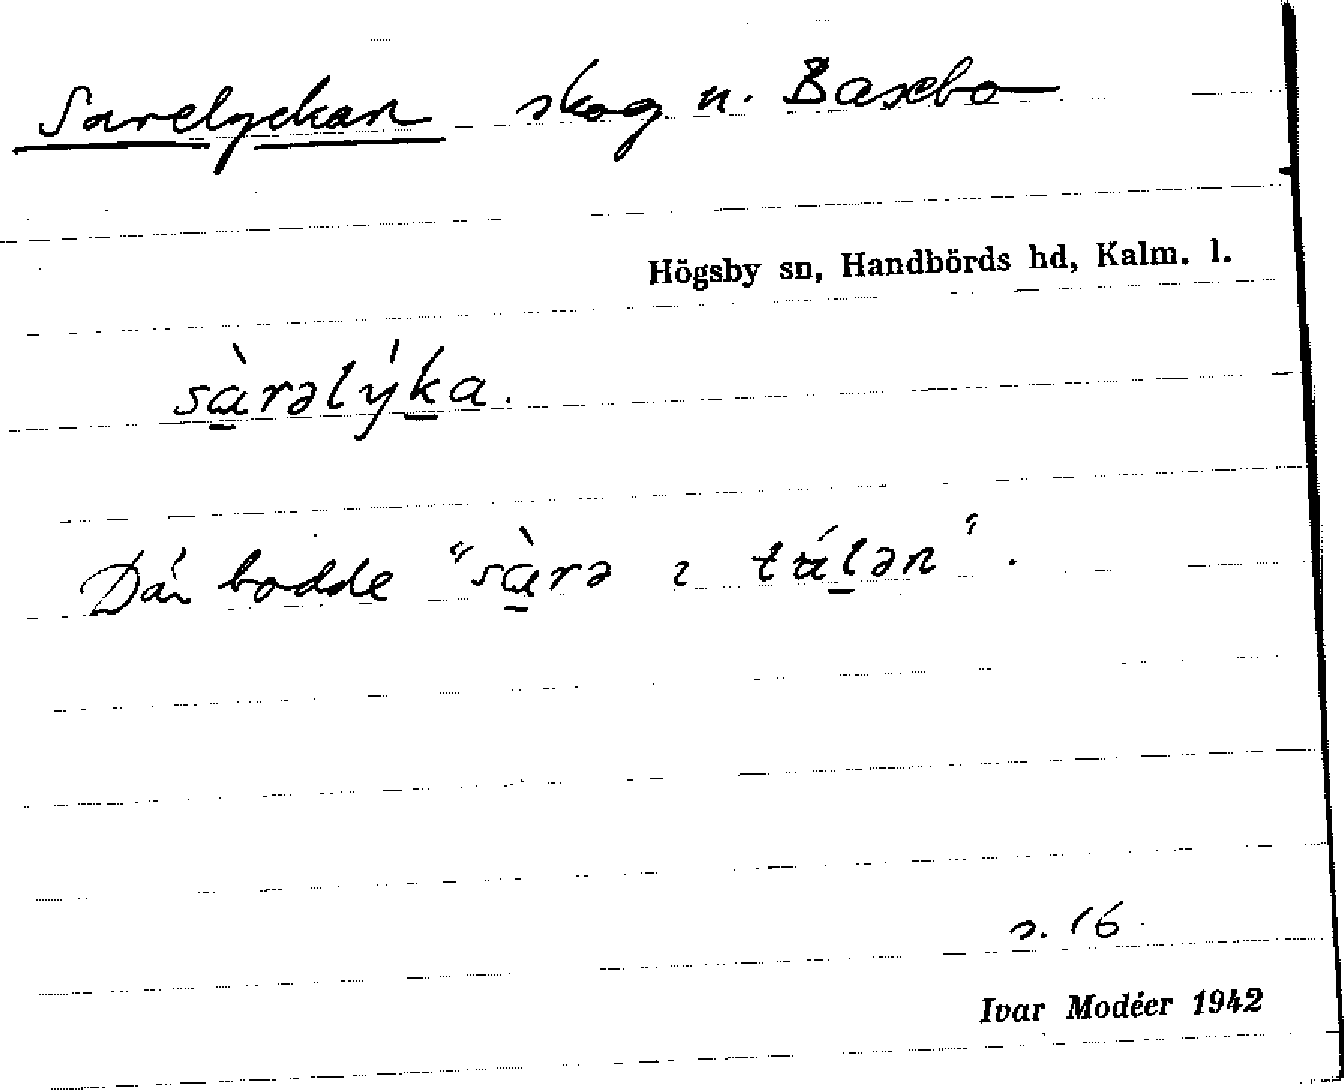 Sarelyckan skog n. Baxebo
Högsby sn, Handbörds hd, Kalm. l.
sàrəlýka.
Där bodde "sàrə ɩ tálən".
s. 16.
Ivar Modéer 1942